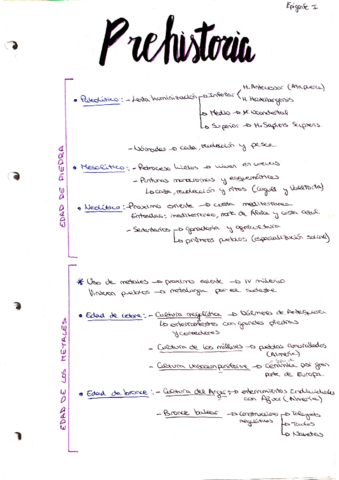 Epígrafe I
Prehistoria
EDAD DE PIEDRA
• Paleolítico: - Lenta hominización → Inferior → H. Antecessor (Atapuerca)
→ H. Heidelbergensis
→ Medio → H. Neandertal
→ Superior → H. Sapiens Sapiens
- Nómadas → caza, recolección y pesca
• Mesolítico: - Retroceso hielos → vivían en cuevas
- Pinturas monocromas y esquemáticas
↳ caza, recolección y ritos (Cogull y Valltorta)
• Neolítico: Próximo oriente → cuenca mediterránea.
Entradas: mediterráneo, norte de África y costa
- Sedentarios → ganadería y agricultura
↳ primeros pueblos (especialización social)
EDAD DE LOS METALES
* Uso de metales → próximo oriente → IV milenio
Vinieron pueblos → metalurgia por el sudeste
• Edad de cobre: - Cultura megalítica → Dólmenes de Antequera
↳ enterramientos con grandes piedras
y corredores
- Cultura de los millares → pueblos amurallados
(Almería)
- Cultura vaso campaniforme → Cerámica por gran
parte de Europa.
• Edad de bronce: - Cultura del Argar → enterramientos individuales
con ajuar (Almería)
- Bronce balear → construcciones megalíticas → Talayots
→ Taulas
→ Navetas